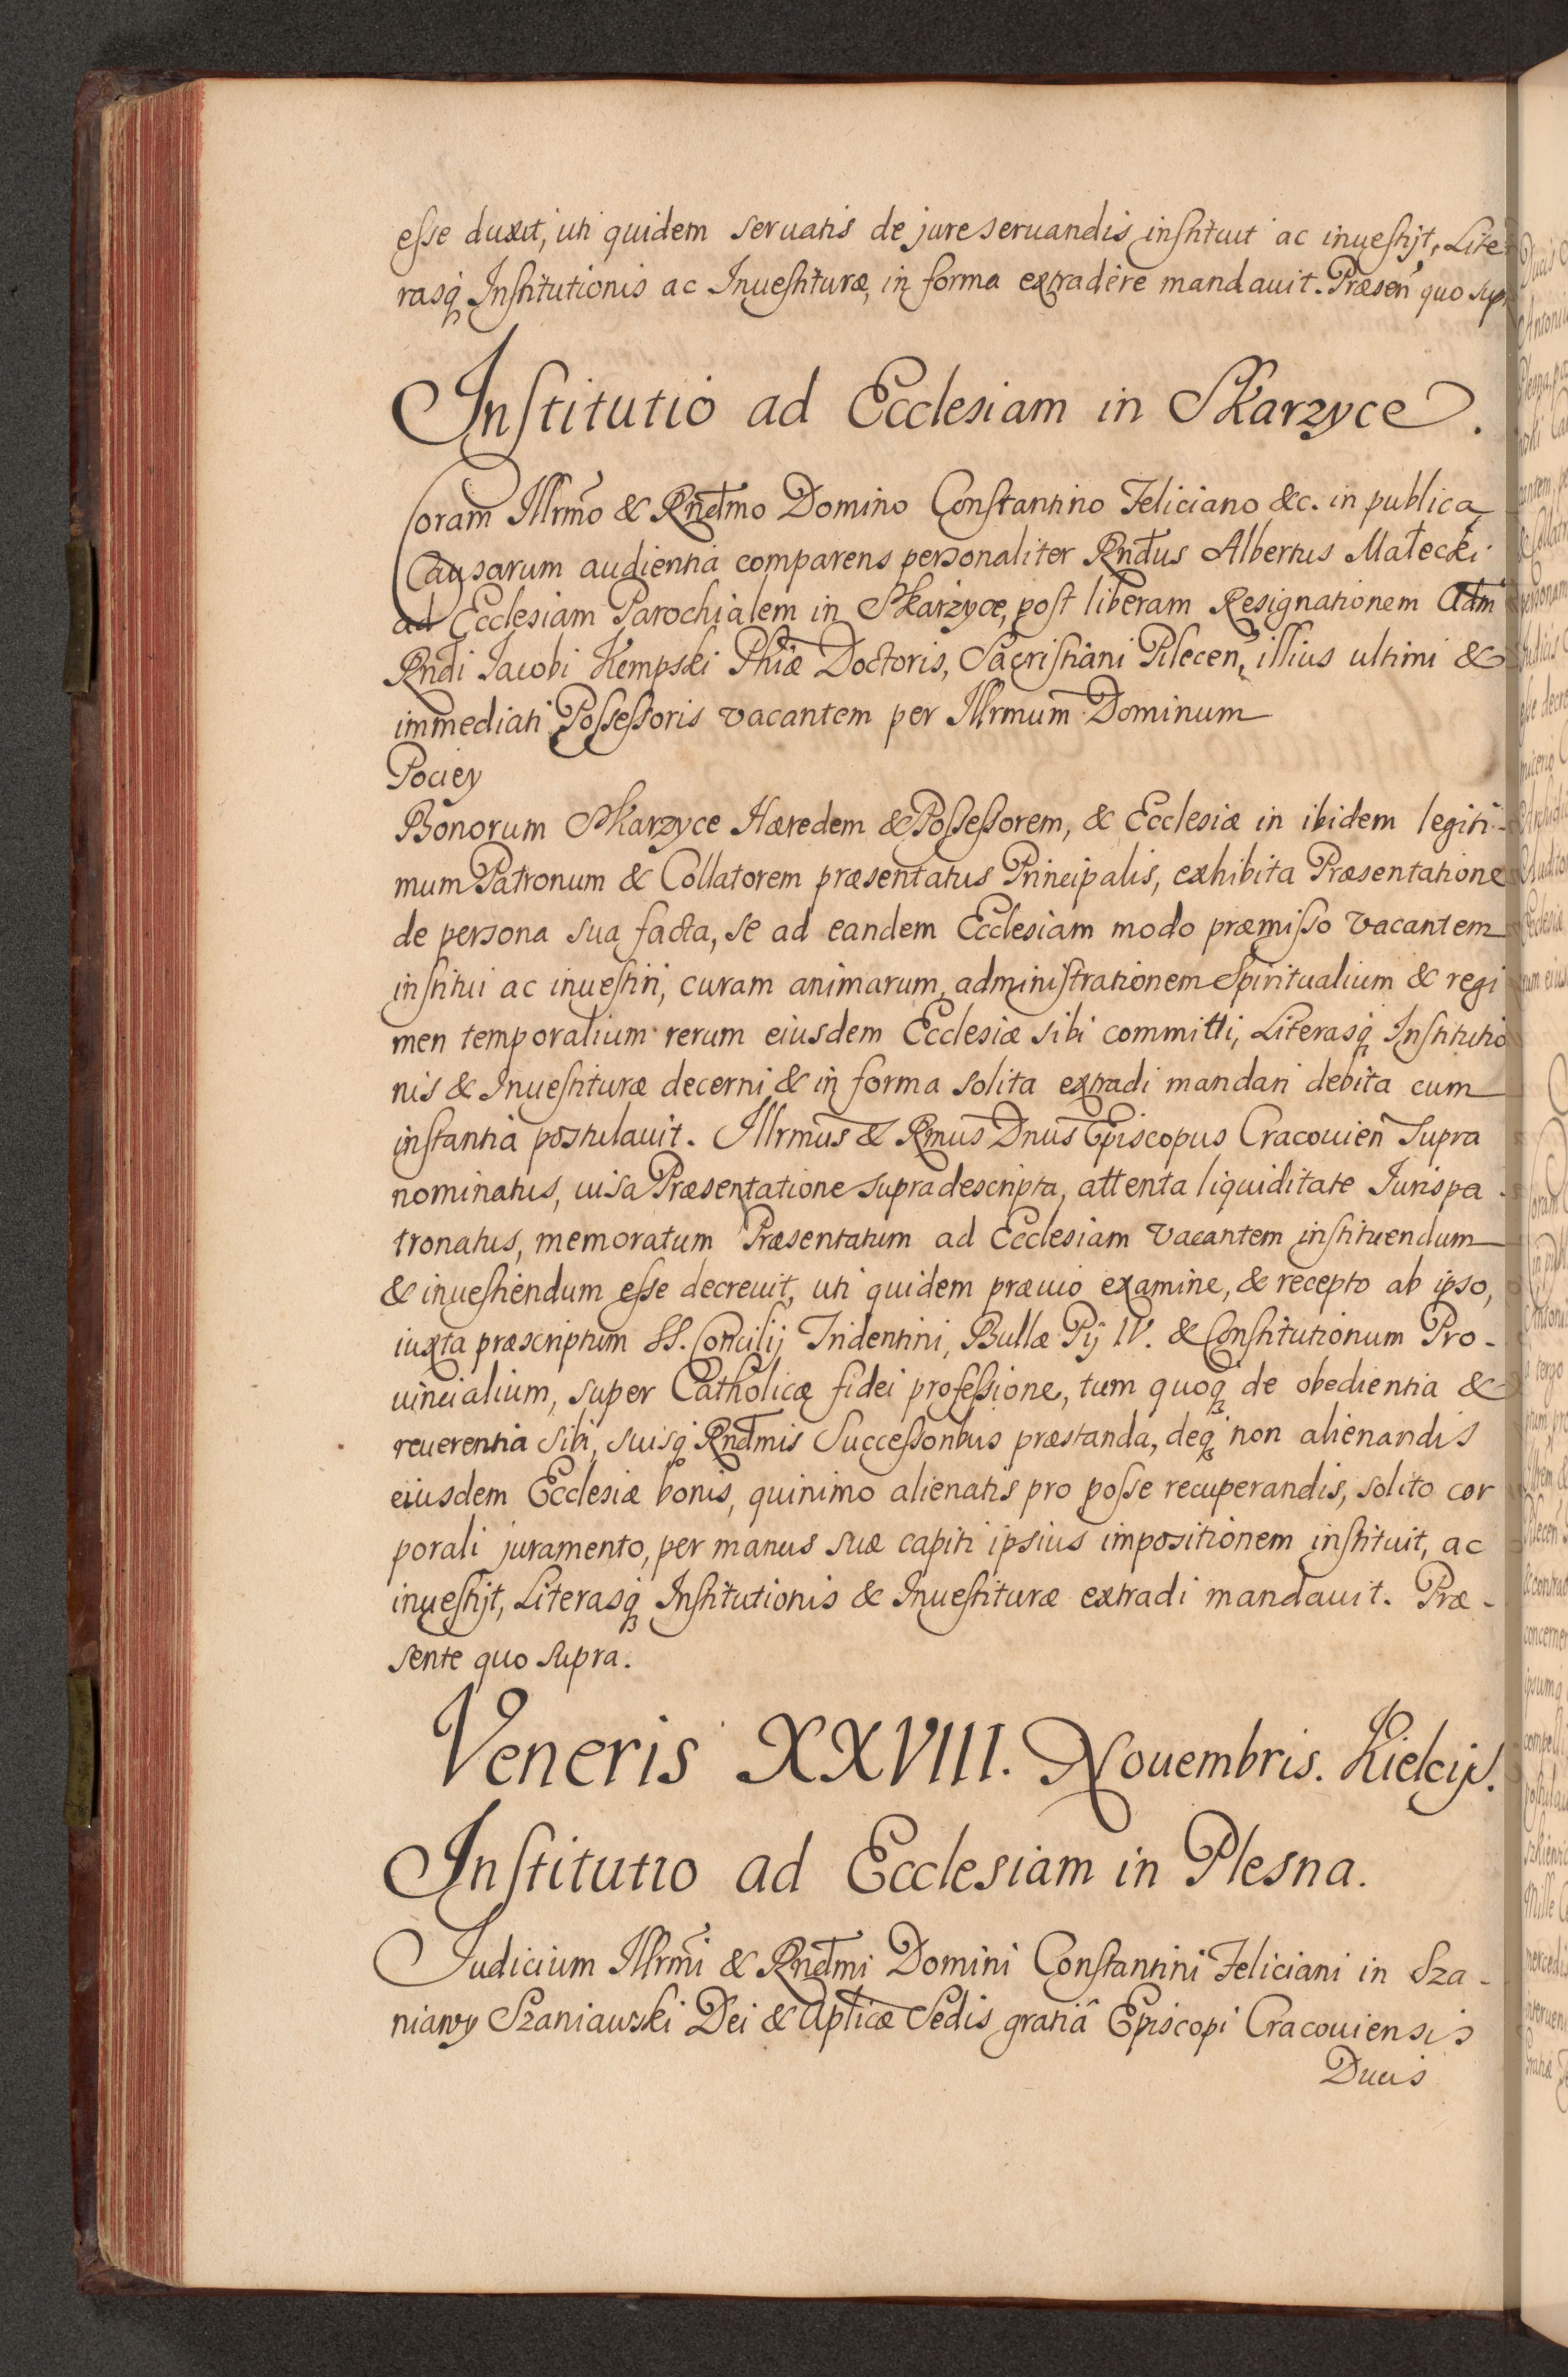 esse duxit, uti quidem seruatis de jure seruandis instituit ac inuestijt, Lite
rasq Institutionis ac Inuestituræ, in forma extradere mandauit. Præsen quo sup
Institutio ad Ecclesiam in Skarzyce.
Coram Illrmo & Rndmo Domino Constantino Feliciano &c. in publica
Causarum audientia comparens personaliter Rndus Albertus Małecki
ad Ecclesiam Parochialem in Skarżyce, post liberam Resignationem Adm
Rndi Iacobi Kempski Phiæ Doctoris, Sacristiani Pilecen, illius ultimi &
immediati Possessoris vacantem per Illrmum Dominum
Pociey
Bonorum Skarzyce Hæredem & Possessorem, & Ecclesiæ in ibidem legiti-
mum Patronum & Collatorem præsentatus Principalis, exhibita Præsentatione
de persona sua facta, se ad eandem Ecclesiam modo præmisso vacantem
institui ac inuestiri, curam animarum, administrationem Spiritualium & regi
men temporalium rerum eiusdem Ecclesiæ sibi committi, Literasq Institutio
nis & Inuestituræ decerni & in forma solita extradi mandari debita cum
instantia postulauit. Illrmus & Rmus Dnus Episcopus Cracouien supra
nominatus, uisa Præsentatione supradescripta, attenta liquiditate Iurispa-
tronatus, memoratum Præsentatum ad Ecclesiam vacantem instituendum
& inuestiendum esse decreuit, uti quidem præuio examine, & recepto ab ipso,
iuxta præscriptum SS. Concilij Tridentini, Bullæ Pij IV. & Constitutionum Pro-
uincialium, super Catholicæ fidei professione, tum quoq de obedientia &
reuerentia sibi, suisq Rndmis Successoribus præstanda, deq non alienandis
eiusdem Ecclesiæ bonis, quinimo alienatis pro posse recuperandis, solito cor
porali juramento, per manus suæ capiti ipsius impositionem instituit, ac
inuestijt, Literasq Institutionis & Inuestituræ extradi mandauit. Præ-
sente quo supra.
Veneris XXVIII. Nouembris. Kielcijs.
Institutio ad Ecclesiam in Plesna.
Iudicium Illrmi & Rndmi Domini Constantini Feliciani in Sza-
niawy Szaniawski Dei & Aplicæ Sedis gratiâ Episcopi Cracouiensis
Ducis